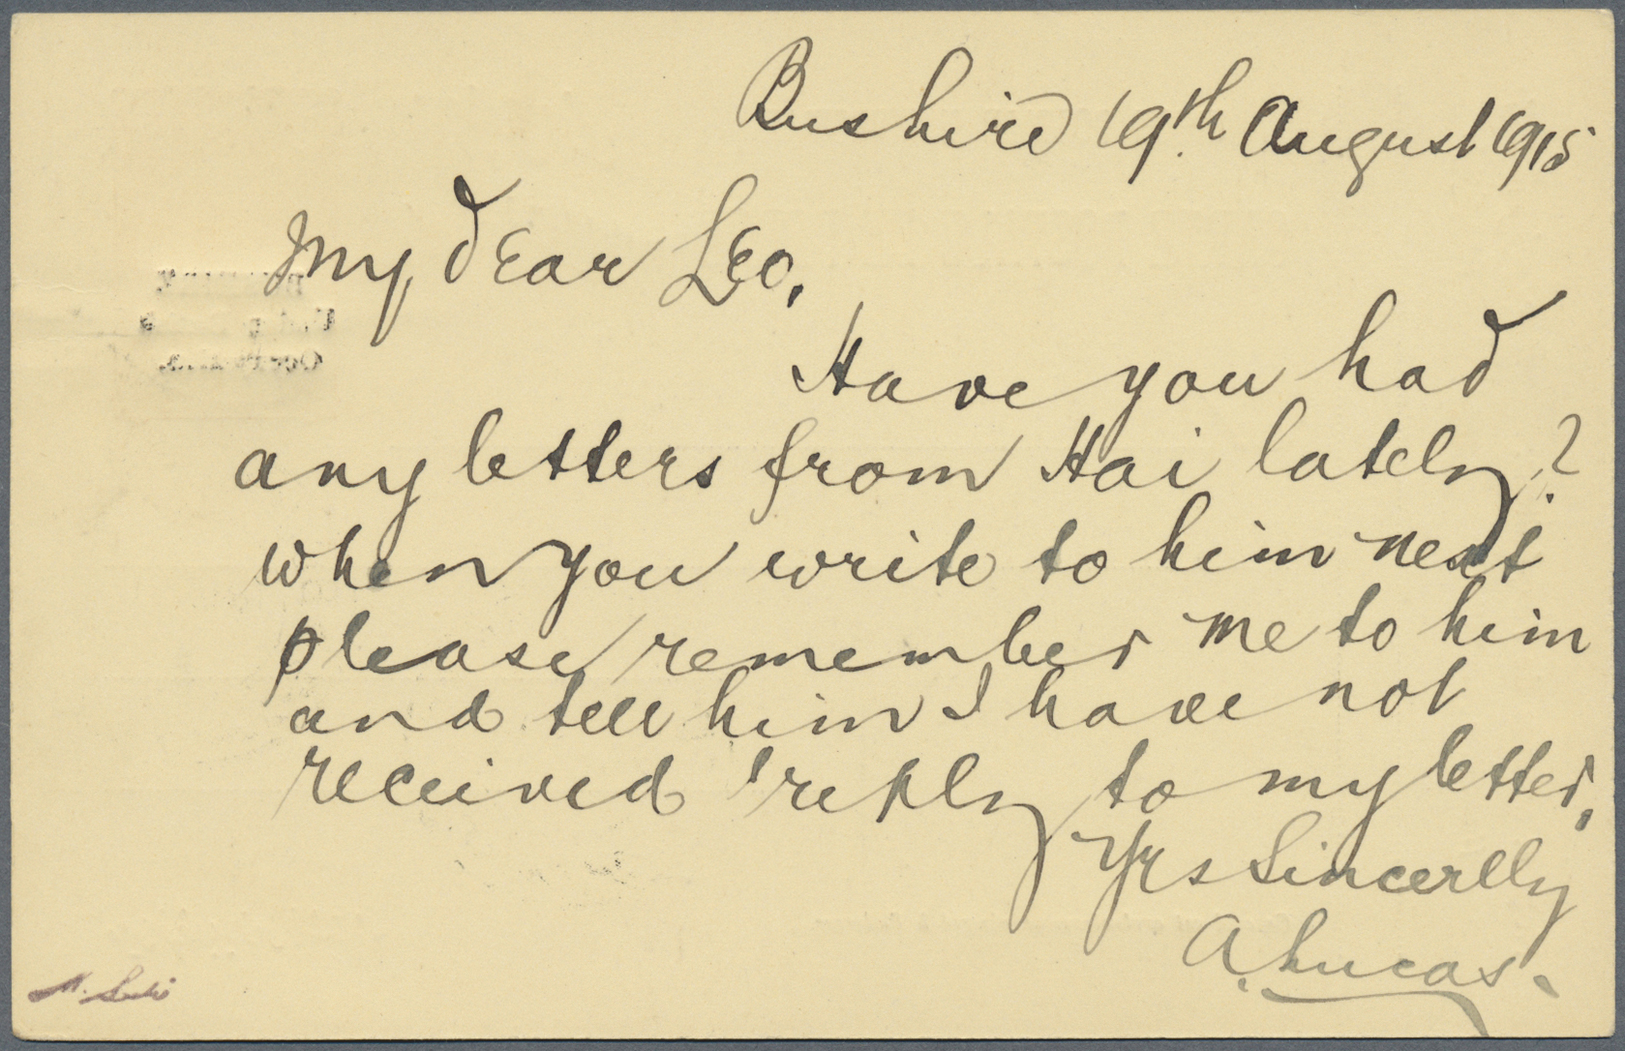 Bushire 19th August 1915
My dear Leo,
Have you had
any letters from Hai lately?
when you write to him next
please remember me to him
and tell him I have not
received reply to my letter,
Yrs Sincerlly
A. Lucas.